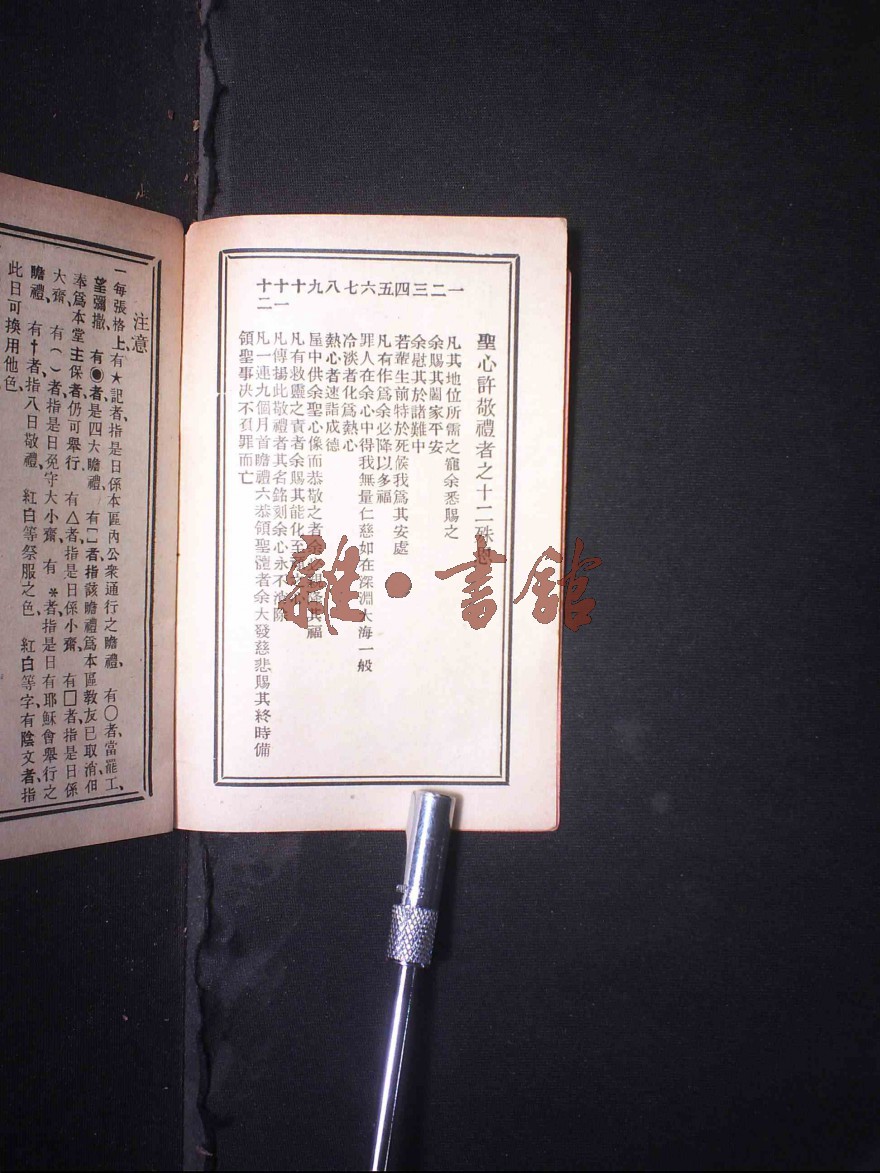 聖心許敬禮者之十二殊恩
一 凡其地位所需之寵余悉賜之
二 余賜其闔家平安
三 余慰其於諸難中
四 若輩生前特於死候我爲其安處
五 凡有作爲余必降以多福
六 罪人在余心中得我無量仁慈如在深淵大海一般
七 冷淡者化爲熱心
八 熱心者速詣成德
九 屋中供余聖心像而恭敬之者余必親降其福
十 凡有救靈之責者余賜其能化至
十一 凡傳揚此敬禮者其名銘刻余心永不消除
十二 凡一連九個月首瞻禮六恭領聖體者余大發慈悲賜其終時備
領聖事决不負罪而亡
注意
一每張格上、有★記者、指是日係本區內公衆通行之瞻禮、 有〇者、當罷工、
望彌撒、 有◉者、是四大瞻禮、 有〔〕者、指該瞻禮爲本區敎友已取消、但
奉爲本堂主保者、仍可舉行、 有△者、指是日係小齋、 有囗者、指是日係
大齋、 有（）者、指是日免守大小齋、 有*者、指是日有耶穌會舉行之
瞻禮、 有†者、指八日敬禮、 紅白等祭服之色、 紅白等字、有陰文者、指
此日可換用他色、
雜·書館